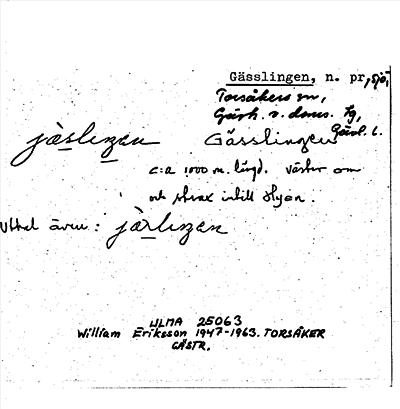 Gässlingen, n. pr., sjö,
Torsåkers sn,
Gästr. ö. doms. tg,
Gävl. l.
jàslengen Gässlingen
c:a 1000 m. långd. väster om
och strax intill Hyen.
Uttal även: jàrlengen
ULMA 25063
William Eriksson 1947-1963. TORSÅKER
GÄSTR.